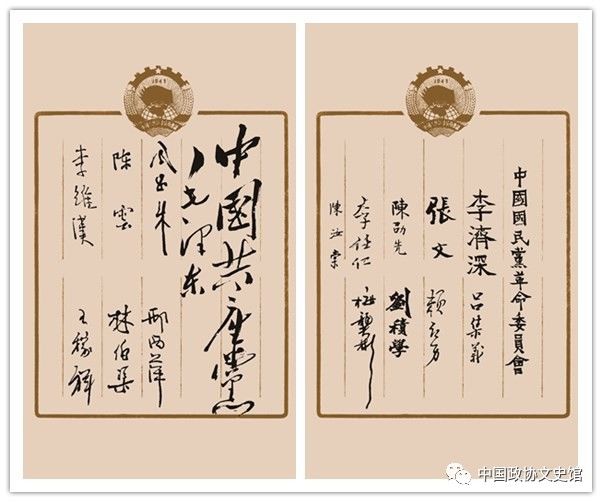 1949
中國共產黨
毛澤东
周恩来 邢西萍
陈雲 林伯渠
李維漢 王稼祥
1949
中國國民黨革命委員會
李濟深 吕集義
張文 賴亚力
陳劭先 劉積學
李任仁 梅龔彬
陳汝棠
中国政协文史馆